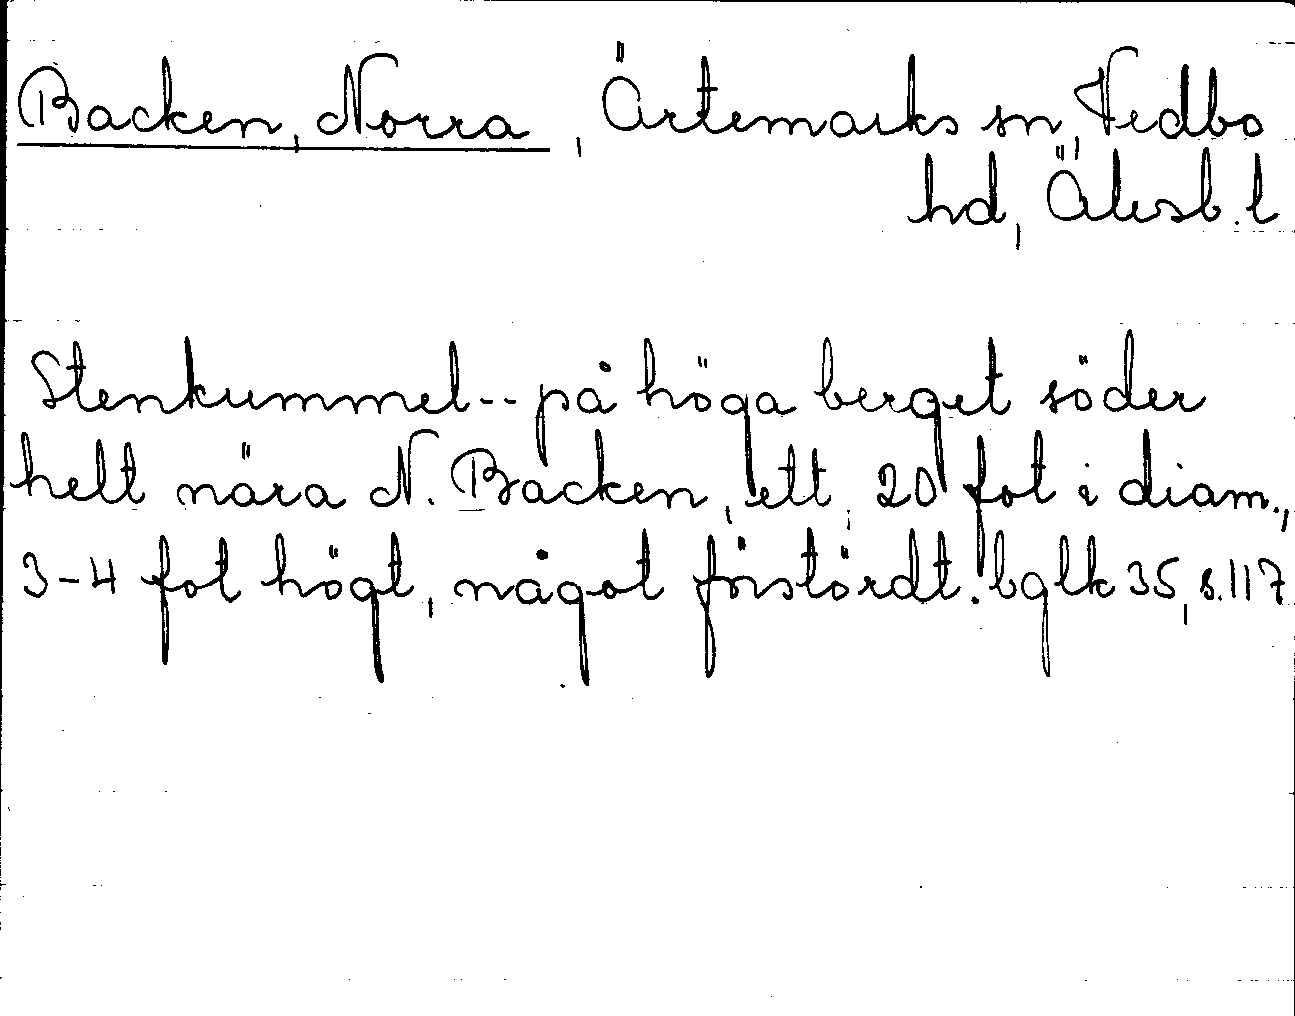 Backen, Norra, Ärtemarks sn, Vedbo
hd, Älvsb. l
Stenkummel -- på höga berget söder
helt nära N. Backen, ett, 20 fot i diam.,
3-4 fot högt, något förstördt. bglk 35, s. 117